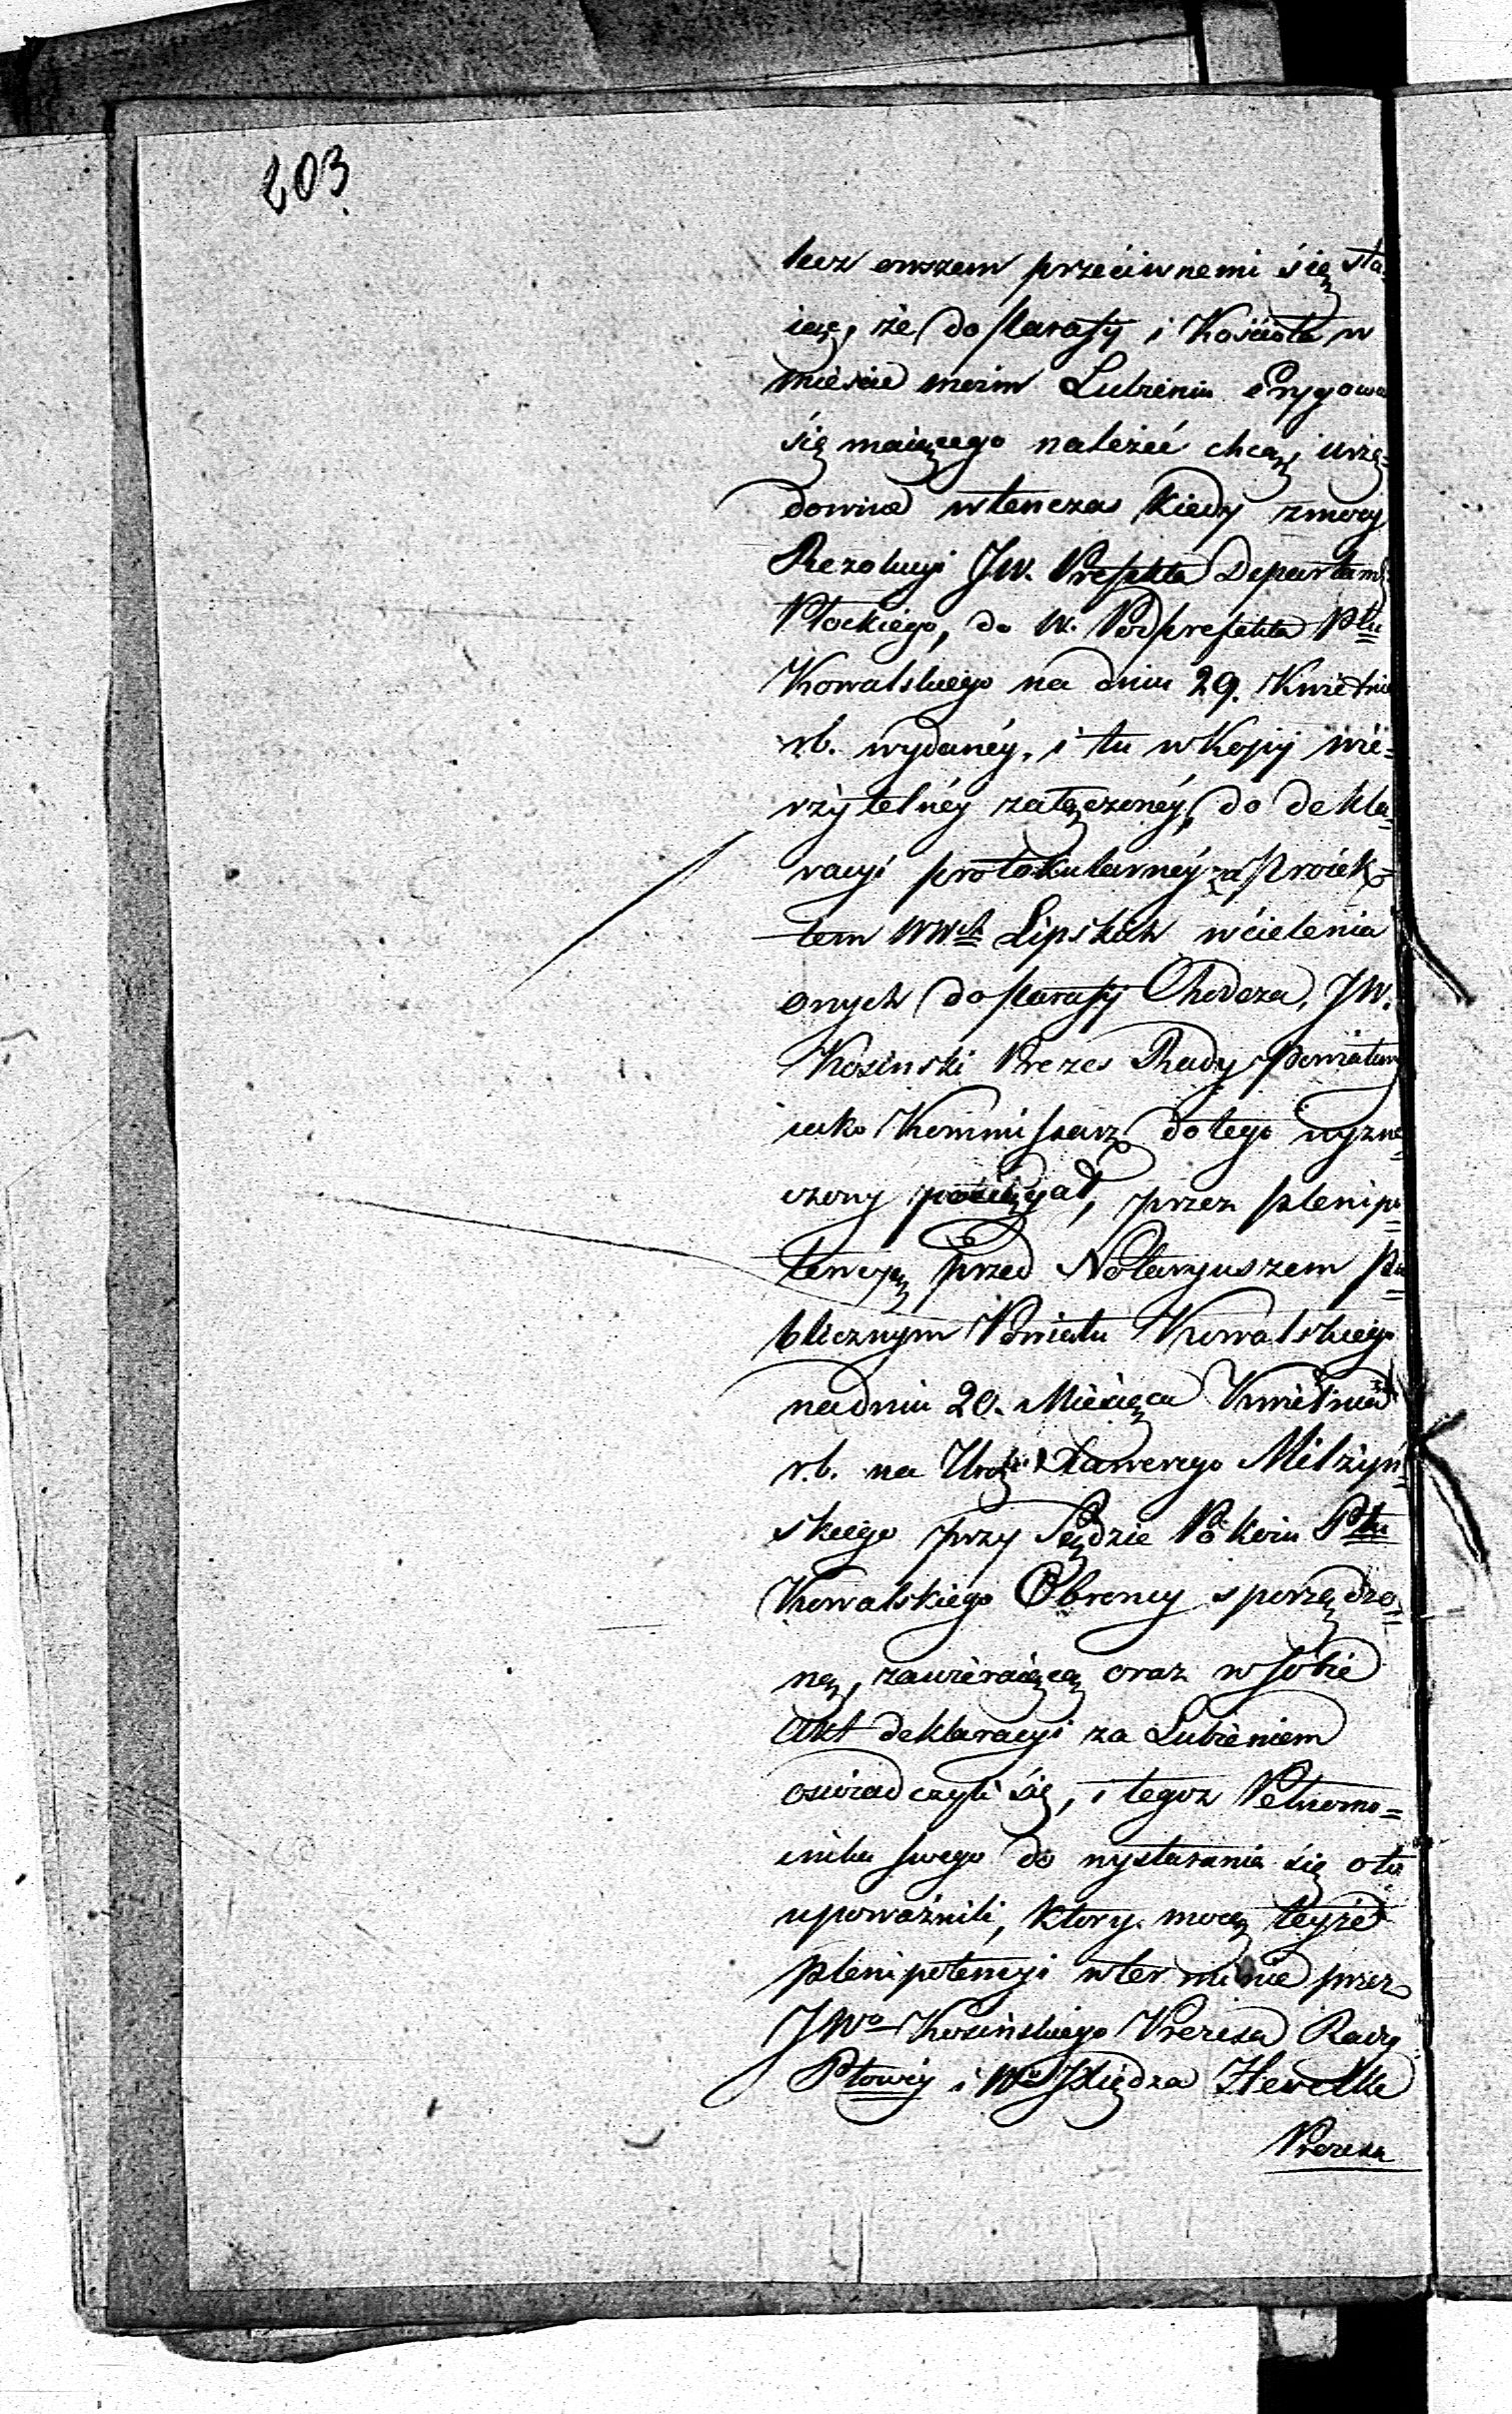 203.
lecz owszem przeciwnemi się sta-
ią, że do Parafij i Kościoła w
mieście moim Lubieniu erygowa
się maiącego należeć chcą, i urzę-
downie wtenczas kiedy z mocy
Rezolucyi JW. Prefekta Departam.
Płockiego, do W. Podprefekta Pttu
Kowalskiego na dniu 29. Kwietnia
r.b. wydanéy, i tu w Kopij wie-
rzytelnéy załączonéy, do dekla-
racyi protokularnéy za proiek-
tem WWch Lipskich wcielenia
onych do Parafij Chodcza, JW.
Kosinski Prezes Rady Powiatow
iako Kommissarz do tego wyzna-
czony pociągał, przez plenipo-
tencyą przed Notaryuszem Pu-
blicznym Powiatu Kowalskiego
na dniu 20. Miesiąca Kwietnia
r.b. na Ur. Xawerego Milżyń-
skiego przy Sądzie Pokoiu Pttu
Kowalskiego Obrońcy sporządzo-
ną, zawieraiącą oraz w sobie
Akt deklaracyi za Lubieniem
oświadczyli się, i tegoż Pełnomo-
cnika swego do wystarania się o to
upoważnili, który mocą teyże
plenipotencyi w terminie przez
JWo Kosińskiego Prezesa Rady
Ptowéy i Wo Xiędza Hewelke
Prezesa